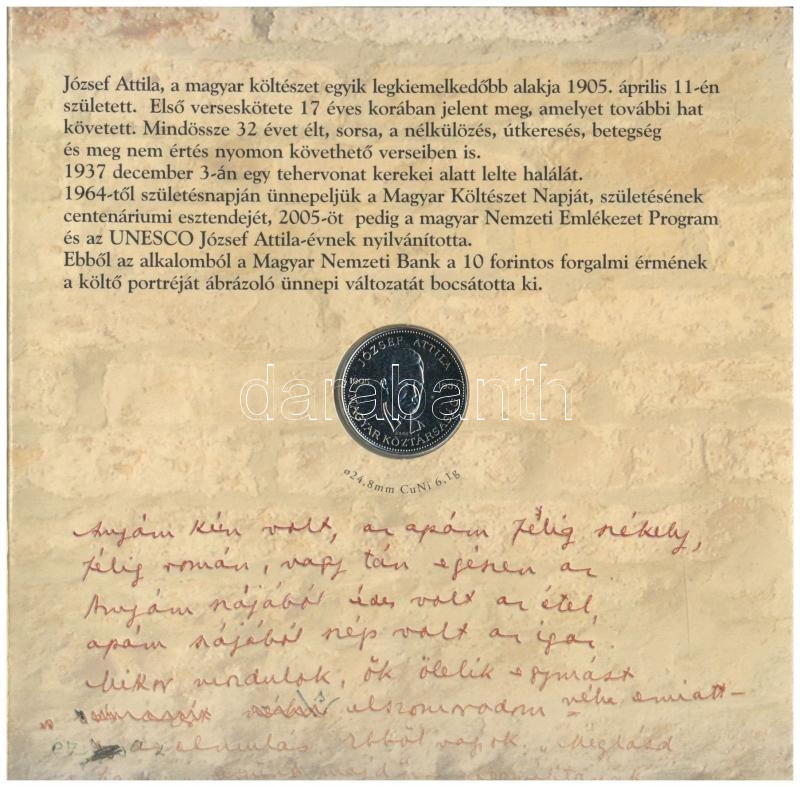 József Attila, a magyar költészet egyik legkiemelkedőbb alakja 1905. április 11-én
született.  Első verseskötete 17 éves korában jelent meg, amelyet további hat
követett. Mindössze 32 évet élt, sorsa, a nélkülözés, útkeresés, betegség
és meg nem értés nyomon követhető verseiben is.
1937 december 3-án egy tehervonat kerekei alatt lelte halálát.
1964-től születésnapján ünnepeljük a Magyar Költészet Napját, születésének
centenáriumi esztendejét, 2005-öt  pedig a magyar Nemzeti Emlékezet Program
és az UNESCO József Attila-évnek nyilvánította.
Ebből az alkalomból a Magyar Nemzeti Bank a 10 forintos forgalmi érmének
a költő portréját ábrázoló ünnepi változatát bocsátotta ki.
JÓZSEF ATTILA
MAGYAR KÖZTÁRSASÁG
darabanth
ø24,8mm CuNi 6,1g
Anyám kún volt, az apám félig székely,
félig román, vagy tán egészen az.
Anyám szájából édes volt az étel,
apám szájából szép volt az igaz.
Mikor mozdulok, ők ölelik egymást
elszomorodom néha emiatt -
ez az elmulás. Ebből vagyok. „Meglásd